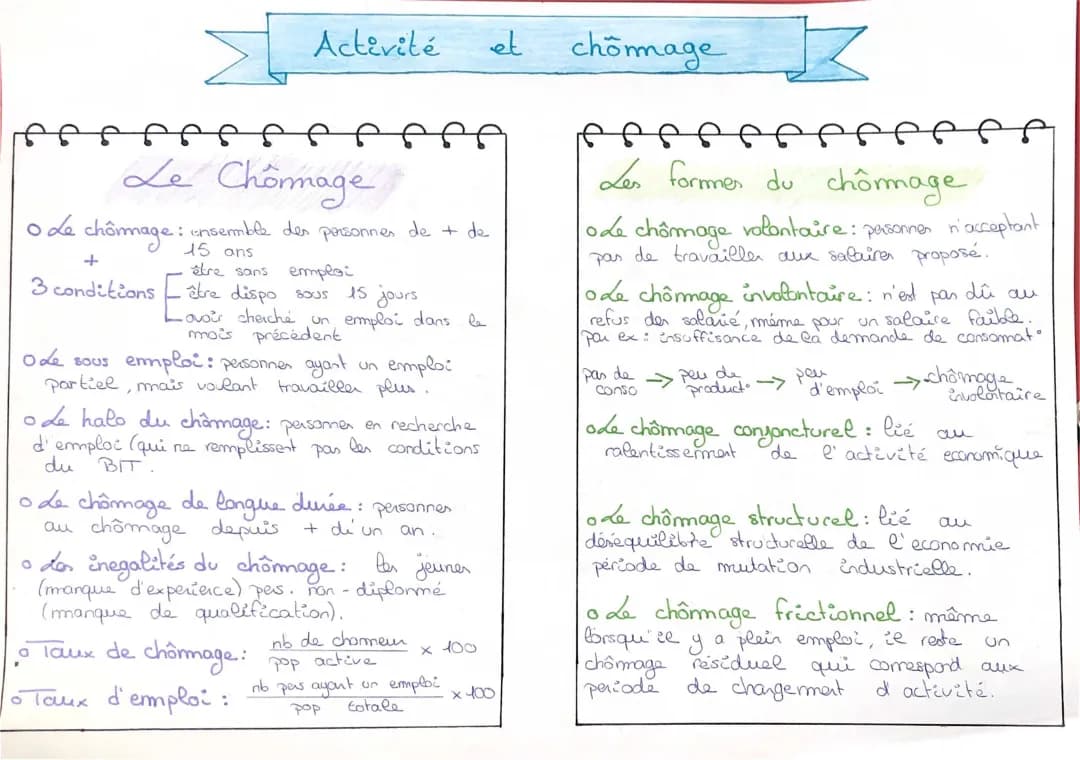 Activité et chômage
Le Chômage
o Le chômage : ensemble des personnes de + de
15 ans
+
3 conditions
être sans emploi
être dispo sous 15 jours
avoir cherché un emploi dans le
mois précédent
o Le sous emploi : personnes ayant un emploi
partiel, mais voulant travailler plus.
o Le halo du chômage : personnes en recherche
d'emploi (qui ne remplissent pas les conditions
du BIT.
o Le chômage de longue durée : personnes
au chômage depuis + d'un an.
o Les inegalités du chômage : les jeunes
(manque d'experience) pers. non-diplomé
(manque de qualification).
o Taux de chômage : nb de chomeur / pop active x 100
o Taux d'emploi : nb pers ayant un emploi / pop totale x 100
Les formes du chômage
o Le chômage volontaire : personnes n'acceptant
pas de travailler aux salaires proposé.
o Le chômage involontaire : n'est pas dû au
refus des salarié, même pour un salaire faible.
par ex : insuffisance de la demande de consommat°
pas de conso → peu de product° → peu d'emploi → chômage involontaire
o Le chômage conjoncturel : lié au
ralentissement de l'activité economique
o Le chômage structurel : lié au
déséquilibre structurelle de l'economie
période de mutation industrielle.
o Le chômage frictionnel : même
lorsqu'il y a plein emploi, il reste un
chômage résiduel qui correspond aux
periode de changement d'activité.